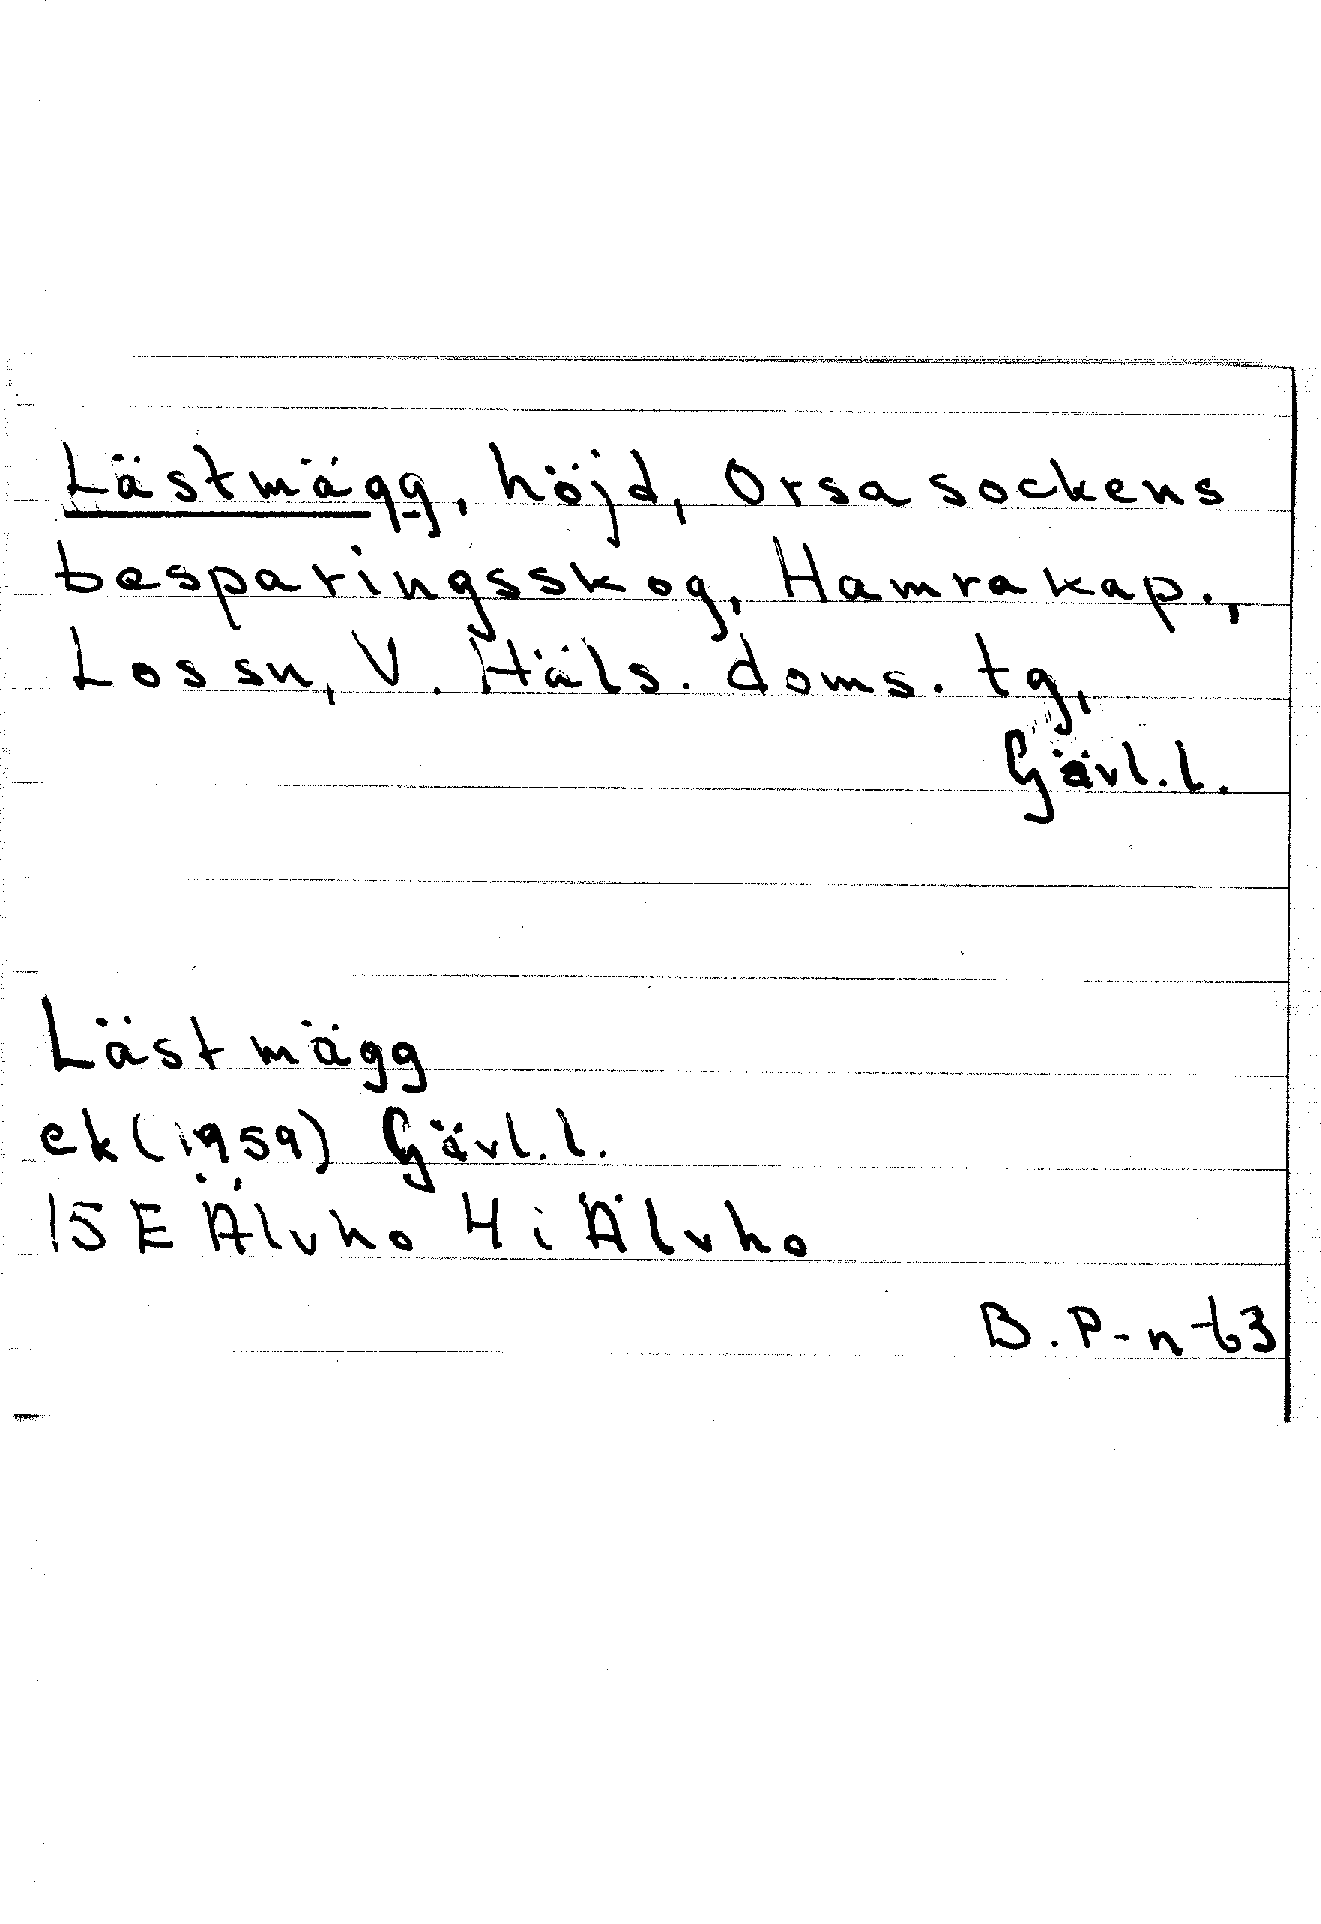 Lästmägg, höjd, Orsa sockens
besparingsskog, Hamra kap.,
Los sn, V. Häls. doms. tg,
Gävl. l.
Lästmägg
ek (1959) Gävl. l.
15 E Älvho 4 i Älvho
B. P-n 63